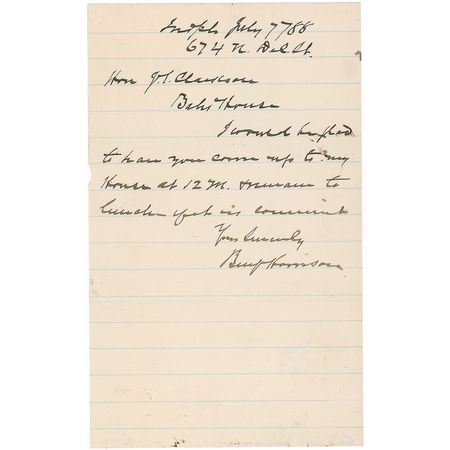 Indpls July 7/88
674 N. Del St.
Hon J. S. Clarkson
Bates House
I would be glad
to have you come up to my
House at 12 M. & remain to
lunch if it is convenient
Yours Sincerely
Benj Harrison